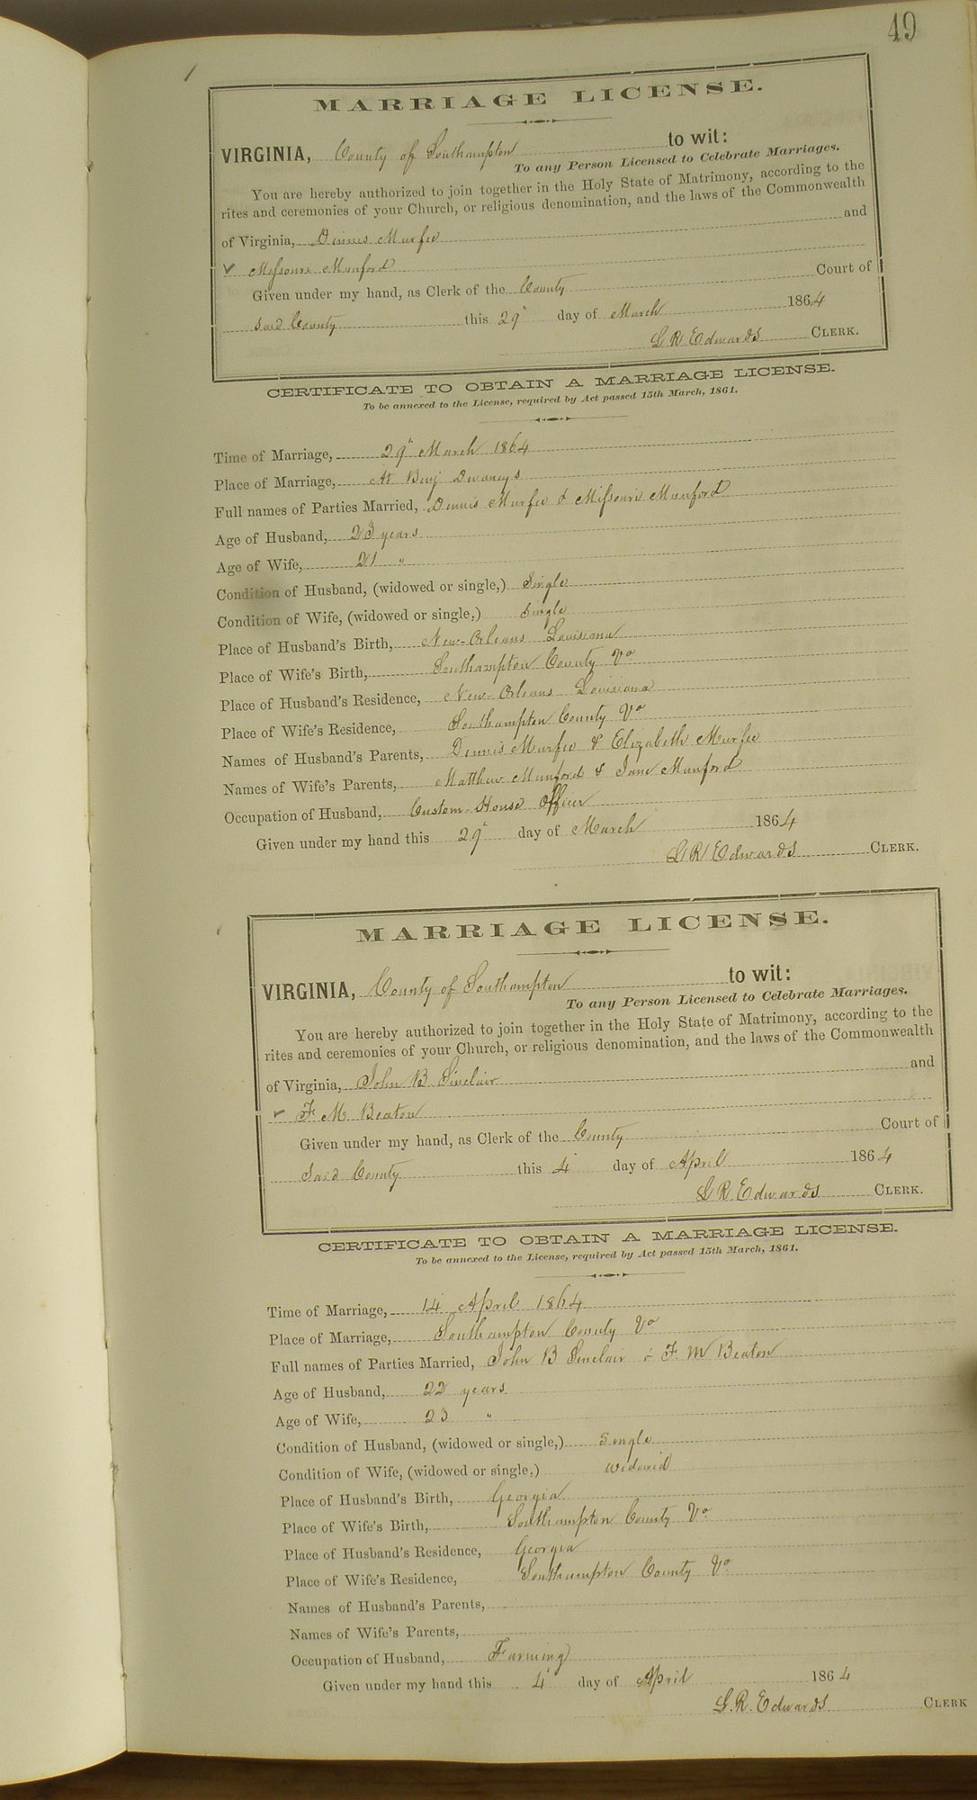 49
MARRIAGE LICENSE.
VIRGINIA, County of Southampton to wit:
To any Person Licensed to Celebrate Marriages.
You are hereby authorized to join together in the Holy State of Matrimony, according to the
rites and ceremonies of your Church, or religious denomination, and the laws of the Commonwealth
of Virginia, Dennis Murfee and
✓ Missouri Munford
Given under my hand, as Clerk of the County Court of
said County this 29" day of March 1864
L R Edwards CLERK.
CERTIFICATE TO OBTAIN A MARRIAGE LICENSE.
To be annexed to the License, required by Act passed 15th March, 1861.
Time of Marriage, 29" March 1864
Place of Marriage, At Benj Dwaney's
Full names of Parties Married, Dennis Murfee & Missouri Munford
Age of Husband, 23 years
Age of Wife, 21 "
Condition of Husband, (widowed or single,) Single
Condition of Wife, (widowed or single,) Single
Place of Husband's Birth, New-Orleans Louisiana
Place of Wife's Birth, Southampton County Va
Place of Husband's Residence, New Orleans Louisiana
Place of Wife's Residence, Southampton County Va
Names of Husband's Parents, Dennis Murfee & Elizabeth Murfee
Names of Wife's Parents, Matthew Munford & Jane Munford
Occupation of Husband, Custom-House Officer
Given under my hand this 29" day of March 1864
L R Edwards CLERK.
MARRIAGE LICENSE.
VIRGINIA, County of Southampton to wit:
To any Person Licensed to Celebrate Marriages.
You are hereby authorized to join together in the Holy State of Matrimony, according to the
rites and ceremonies of your Church, or religious denomination, and the laws of the Commonwealth
of Virginia, John B Sinclair and
✓ F. M. Beaton
Given under my hand, as Clerk of the County Court of
said County this 4" day of April 1864
L R. Edwards CLERK.
CERTIFICATE TO OBTAIN A MARRIAGE LICENSE.
To be annexed to the License, required by Act passed 15th March, 1861.
Time of Marriage, 14 April 1864
Place of Marriage, Southampton County Va
Full names of Parties Married, John B Sinclair & F. M Beaton
Age of Husband, 22 years
Age of Wife, 23 "
Condition of Husband, (widowed or single,) Single
Condition of Wife, (widowed or single,) widowed
Place of Husband's Birth, Georgia
Place of Wife's Birth, Southampton County Va
Place of Husband's Residence, Georgia
Place of Wife's Residence, Southampton County Va
Names of Husband's Parents,
Names of Wife's Parents,
Occupation of Husband, Farming
Given under my hand this 4" day of April 1864
L. R. Edwards CLERK